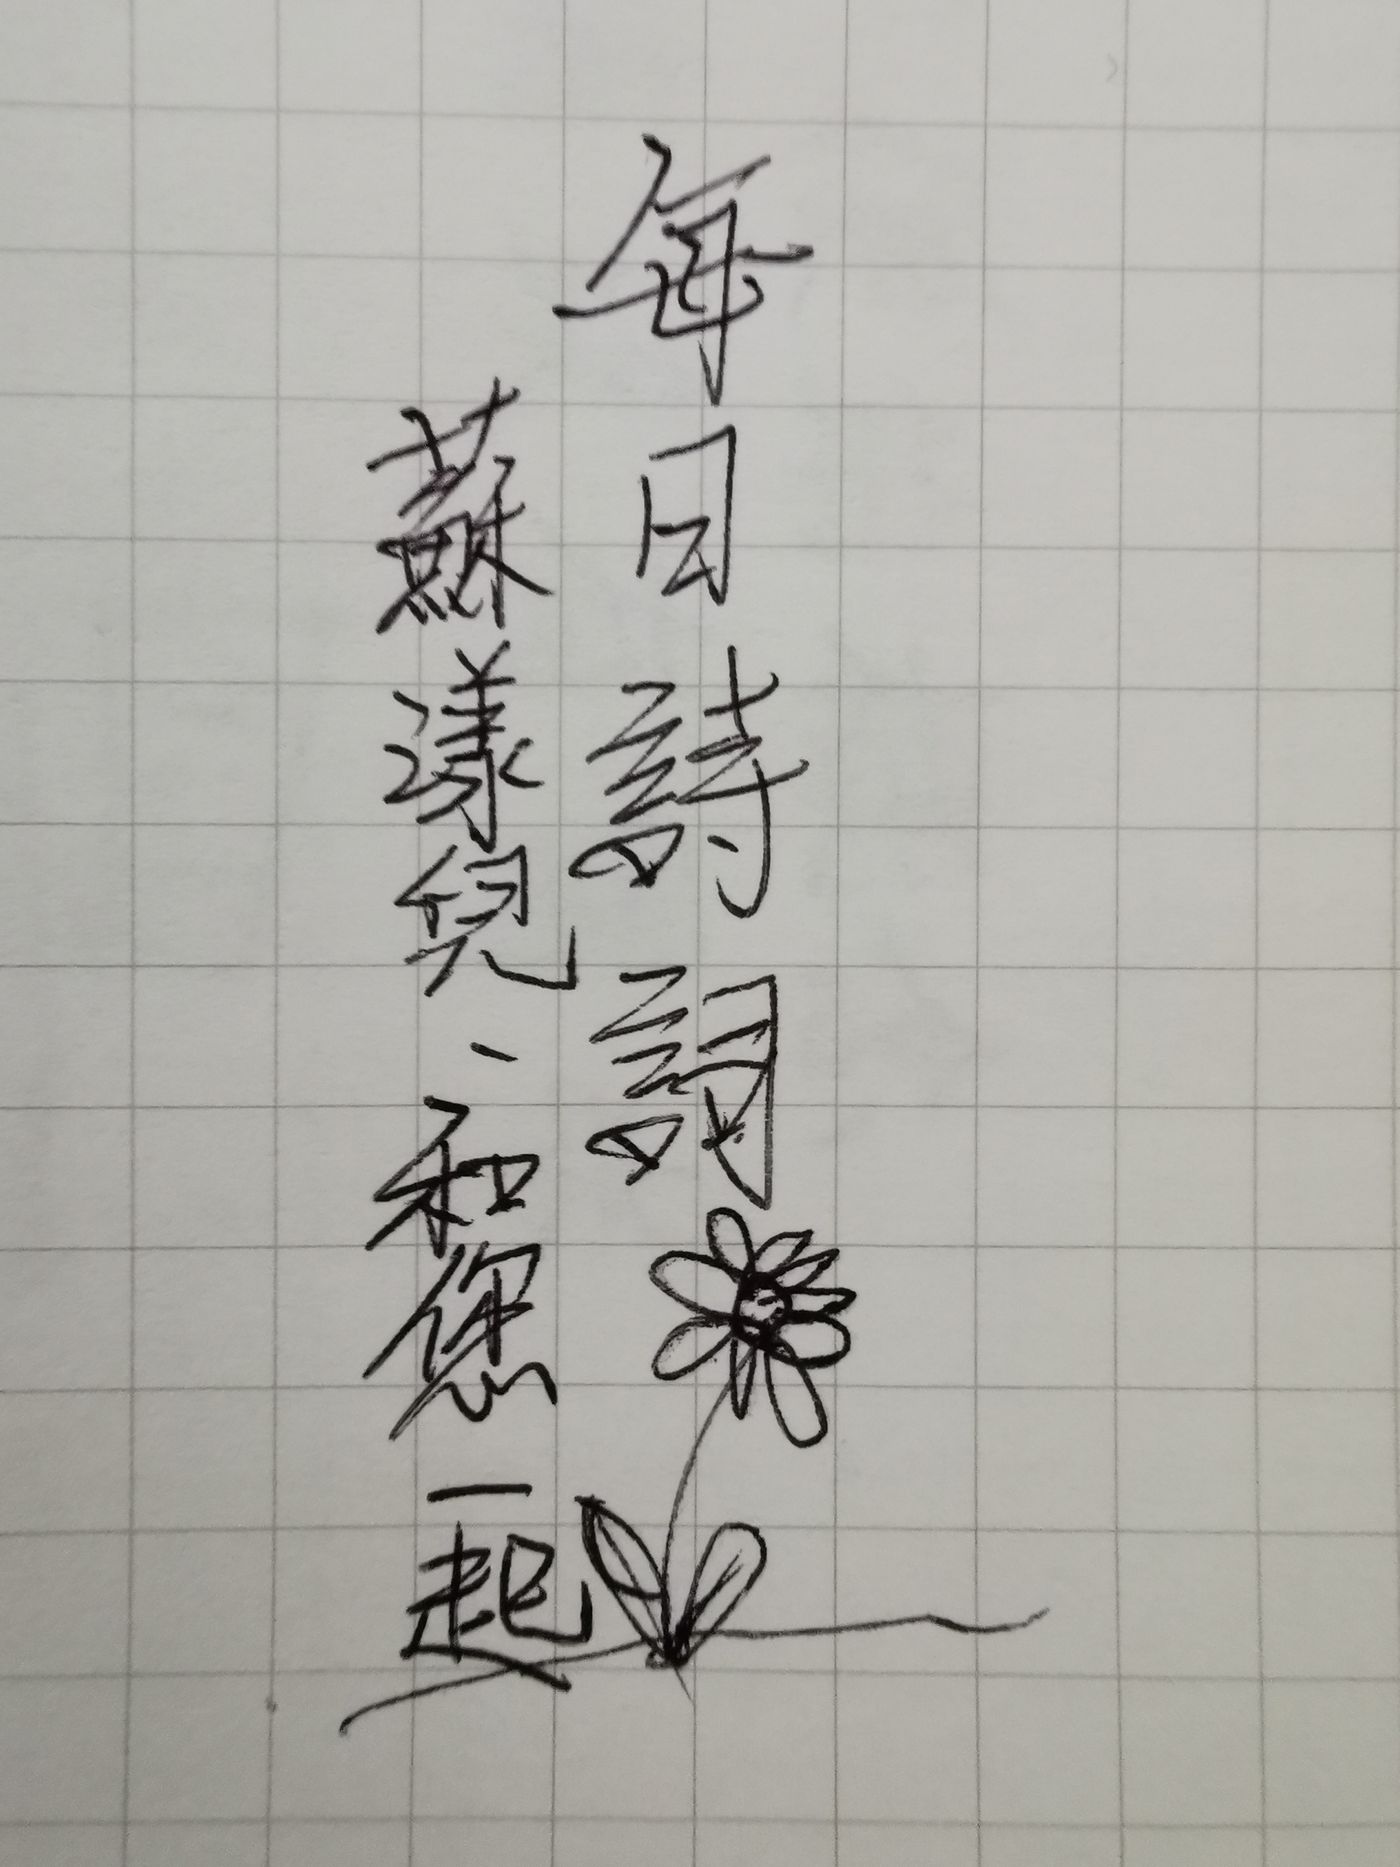 每日詩詞
蘇漾兒、和您一起